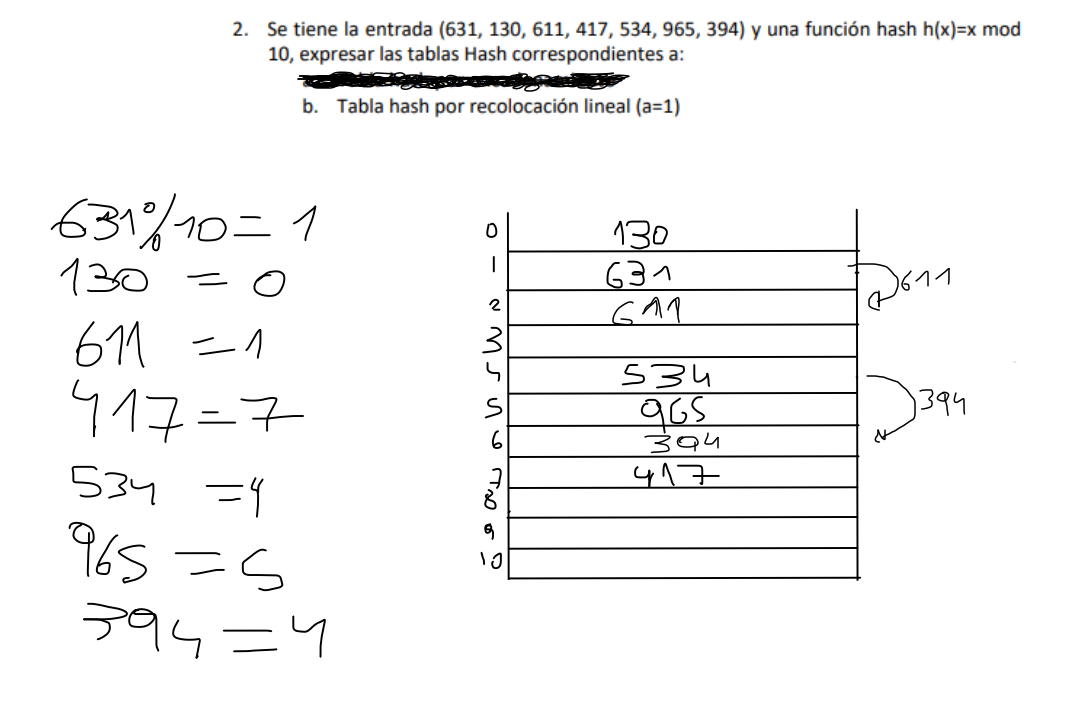 2. Se tiene la entrada (631, 130, 611, 417, 534, 965, 394) y una función hash h(x)=x mod
10, expresar las tablas Hash correspondientes a:
b. Tabla hash por recolocación lineal (a=1)
631%10=1
130 = 0
611 =1
417=7
534 =4
965 =5
394 =4
0 130
1 631
2 611
3
4 534
5 965
6 394
7 417
8
9
10
611
394